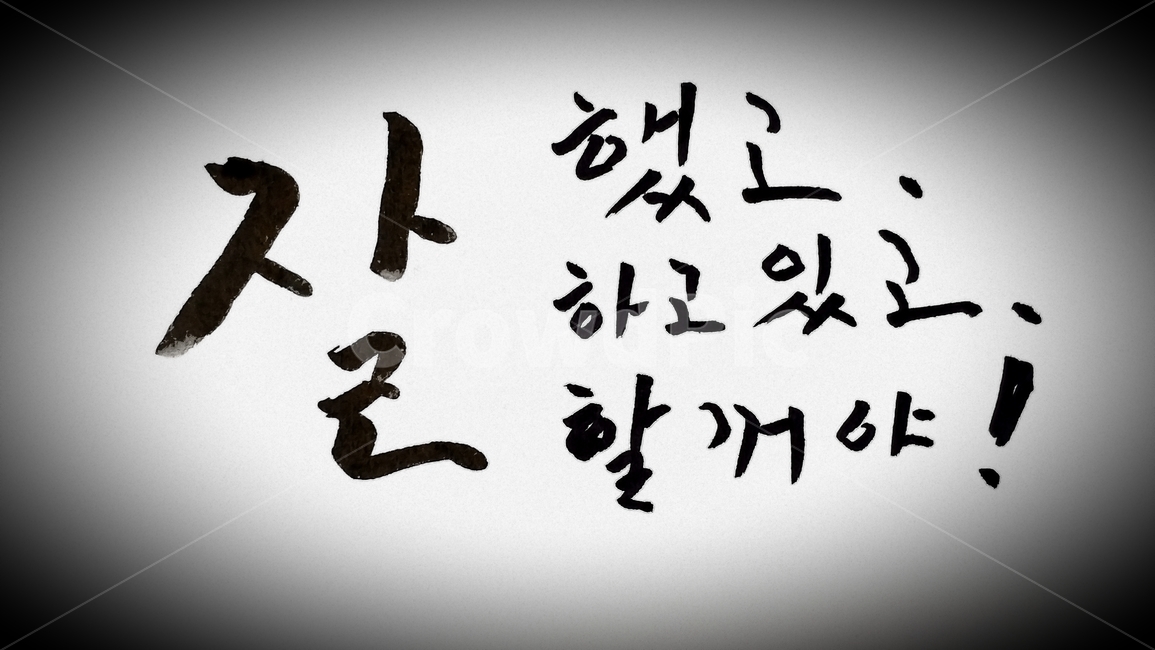 잘
했고.
하고 있고.
할꺼야!
CrowdPic